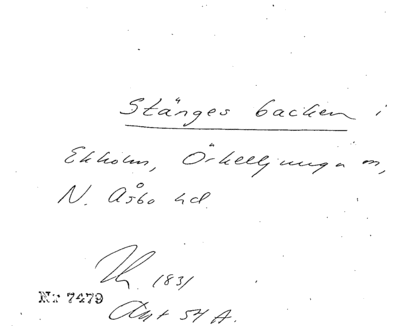 Stänges backen i
Ekholm, Örkelljunga sn,
N. Åsbo hd
1831
Nr 7479
Akt 54 A.